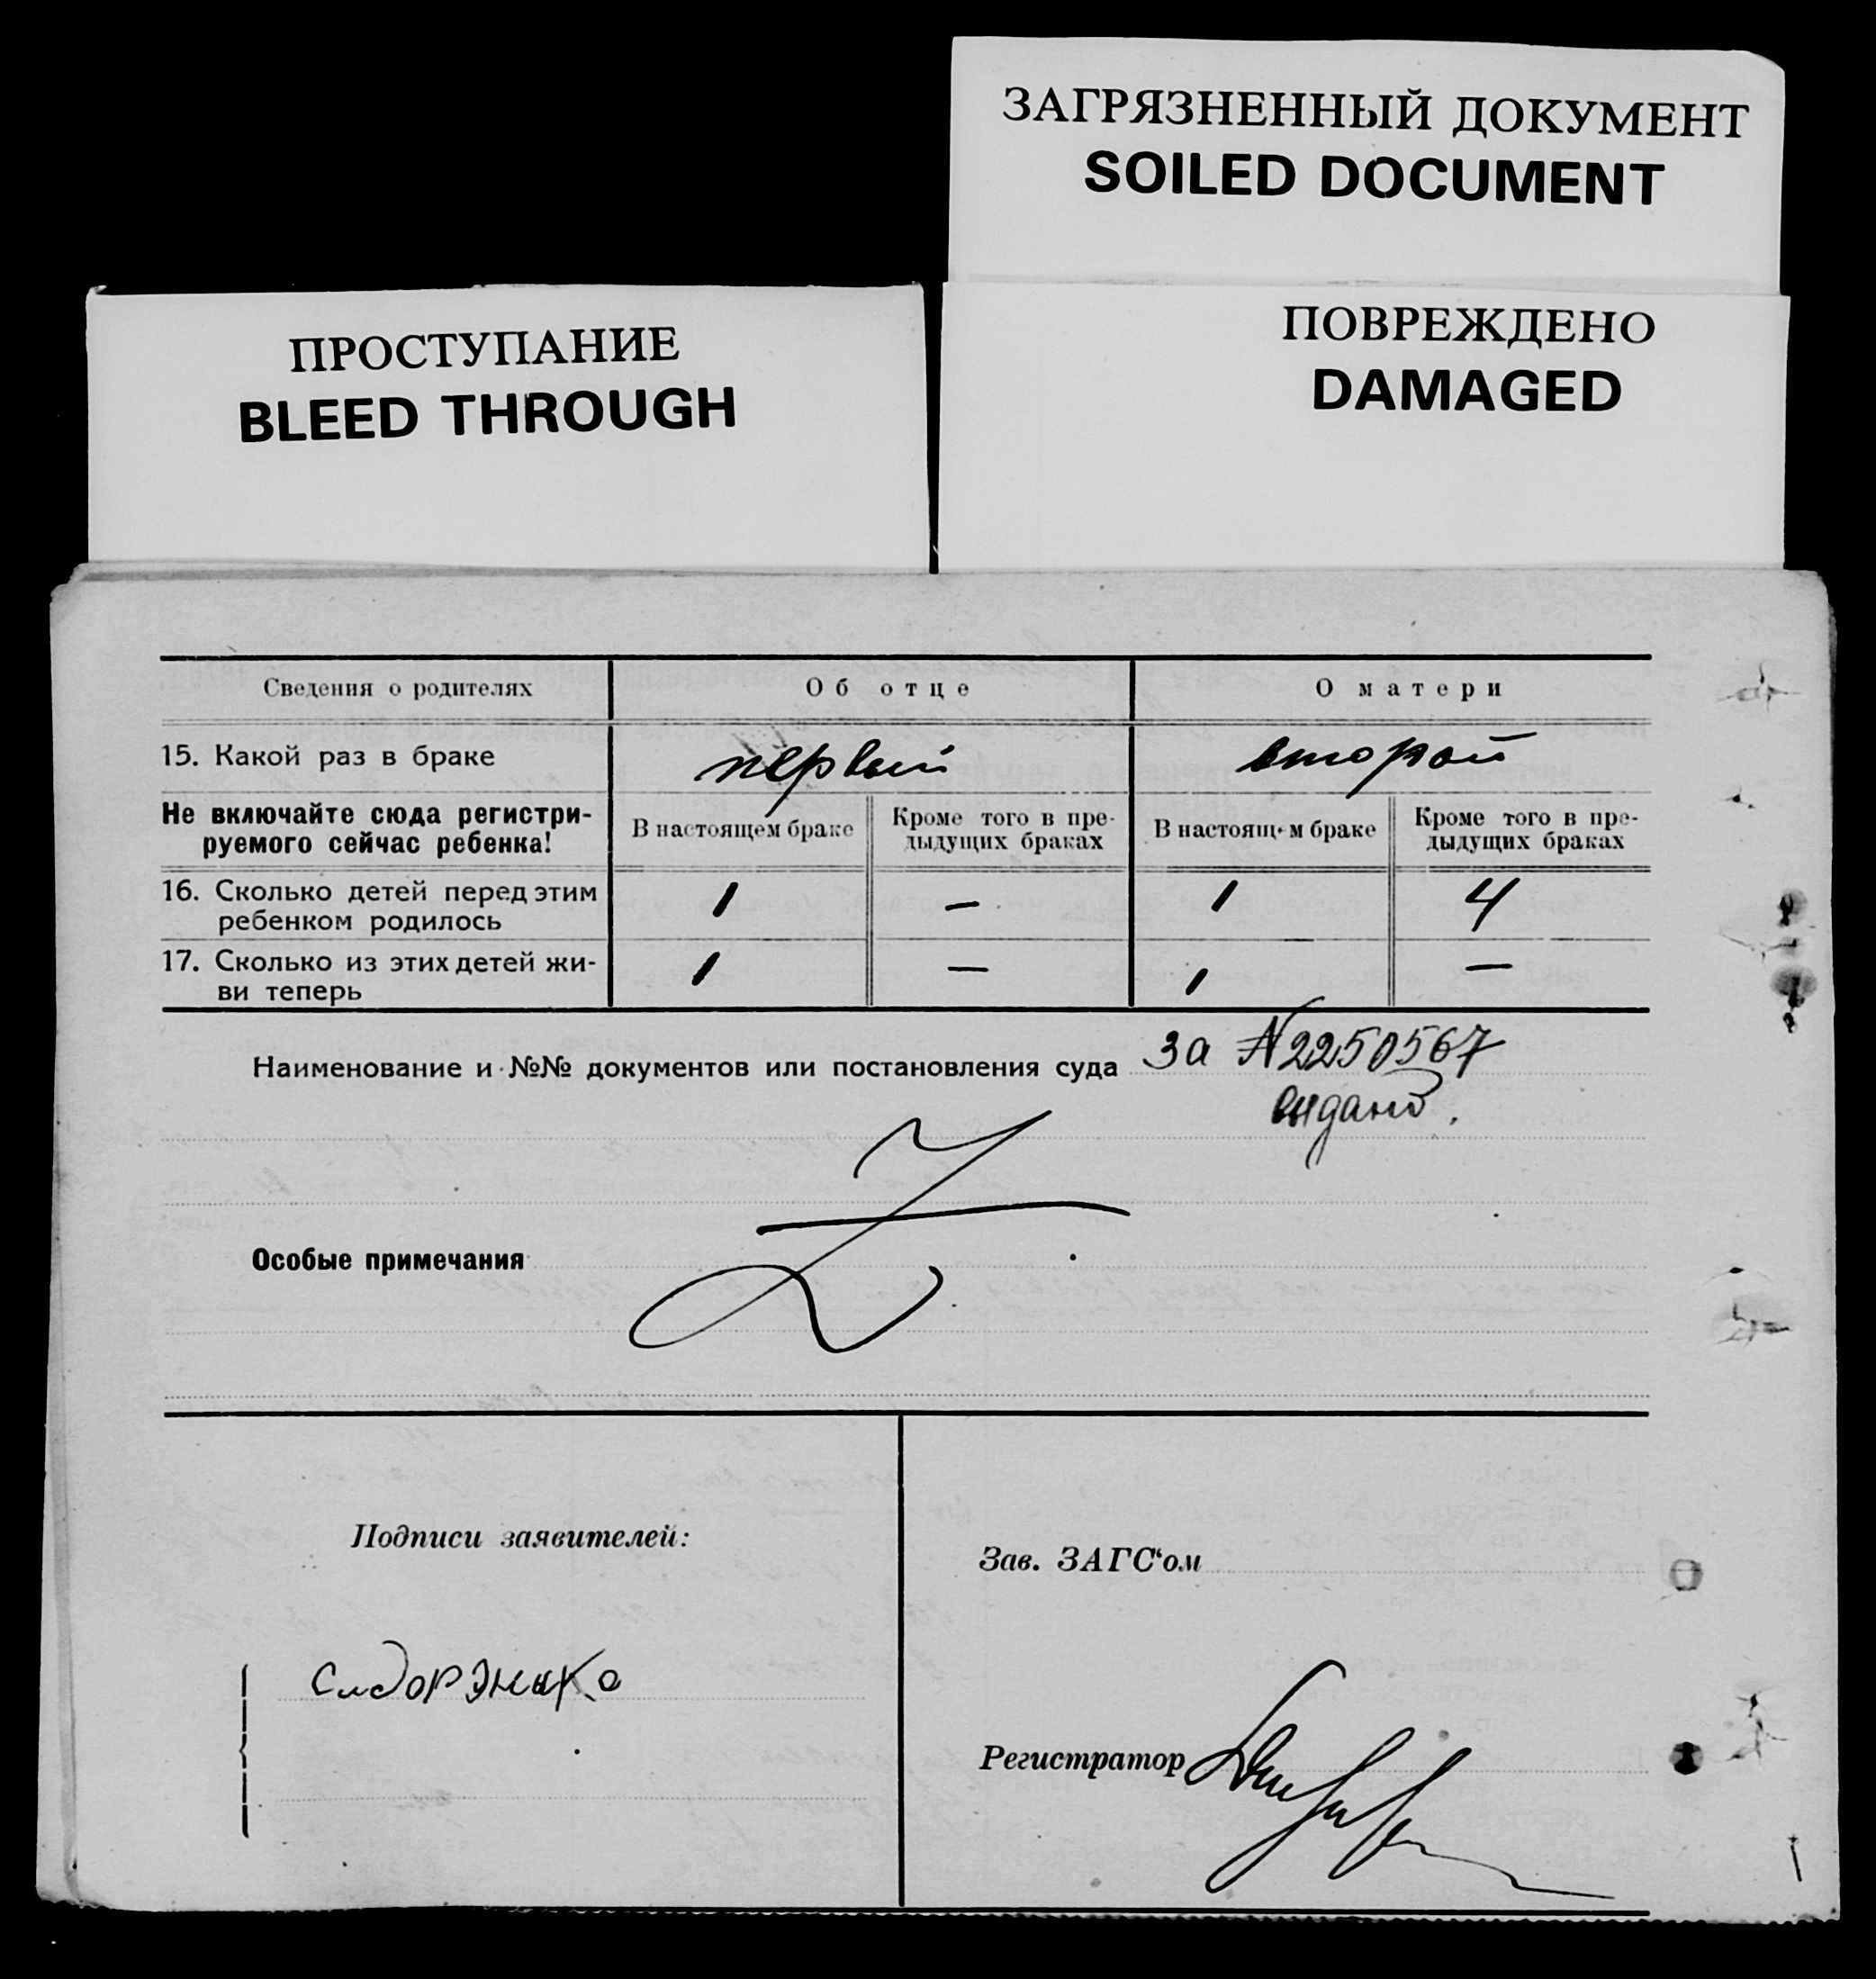 ЗАГРЯЗНЕННЫЙ ДОКУМЕНТ
SOILED DOCUMENT
ПРОСТУПАНИЕ
BLEED THROUGH
ПОВРЕЖДЕНО
DAMAGED
Сведения о родителях Об отце О матери
15. Какой раз в браке первый второй
Не включайте сюда регистри-
руемого сейчас ребенка!
В настоящем браке
Кроме того в пре-
дыдущих браках
В настоящем браке
Кроме того в пре-
дыдущих браках
16. Сколько детей перед этим
ребенком родилось
1 — 1 4
17. Сколько из этих детей жи-
ви теперь
1 — 1 —
Наименование и №№ документов или постановления суда за №2250567
выдано.
Особые примечания
Подписи заявителей:
Зав. ЗАГС‘ом
Сидорэнько
Регистратор